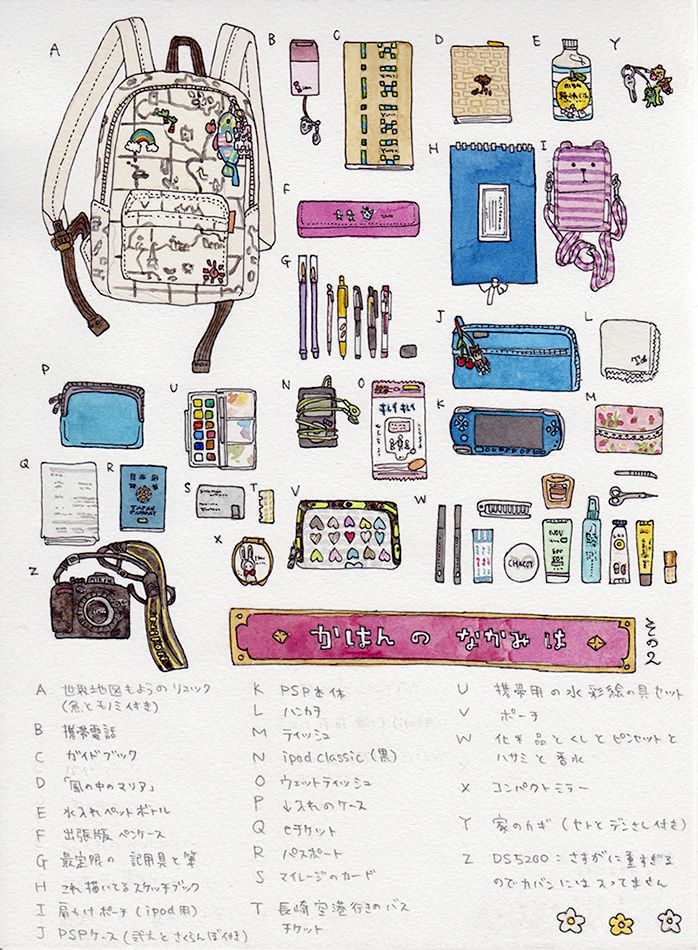 A
B
C
D
E
Y
F
H
I
G
J
L
P
U
N
O
K
M
Q
R
S
T
V
W
X
Z
日本国
JAPAN
PASSPORT
キレイキレイ
CHACOT
かばんの なかみ は
その2
A 世界地図もようのリュック
(魚とモノミ付き)
B 携帯電話
C ガイドブック
D 「風の中のマリア」
E 水入れペットボトル
F 出張版 ペンケース
G 最定限の 記用具と筆
H これ描いてるスケッチブック
I 肩かけポーチ(ipod用)
J PSPケース(武犬とさくらんぼ付き)
K PSP本体
L ハンカチ
M ティッシュ
N ipod classic(黒)
O ウェットティッシュ
P 小入れのケース
Q eチケット
R パスポート
S マイレージのカード
T 長崎空港行きのバス
チケット
U 携帯用の水彩絵の具セット
V ポーチ
W 化粧品とくしとピンセットと
ハサミと香水
X コンパクトミラー
Y 家のカギ(ヤトとデンさし付き)
Z DS5200:さすがに重すぎる
のでカバンには入ってません